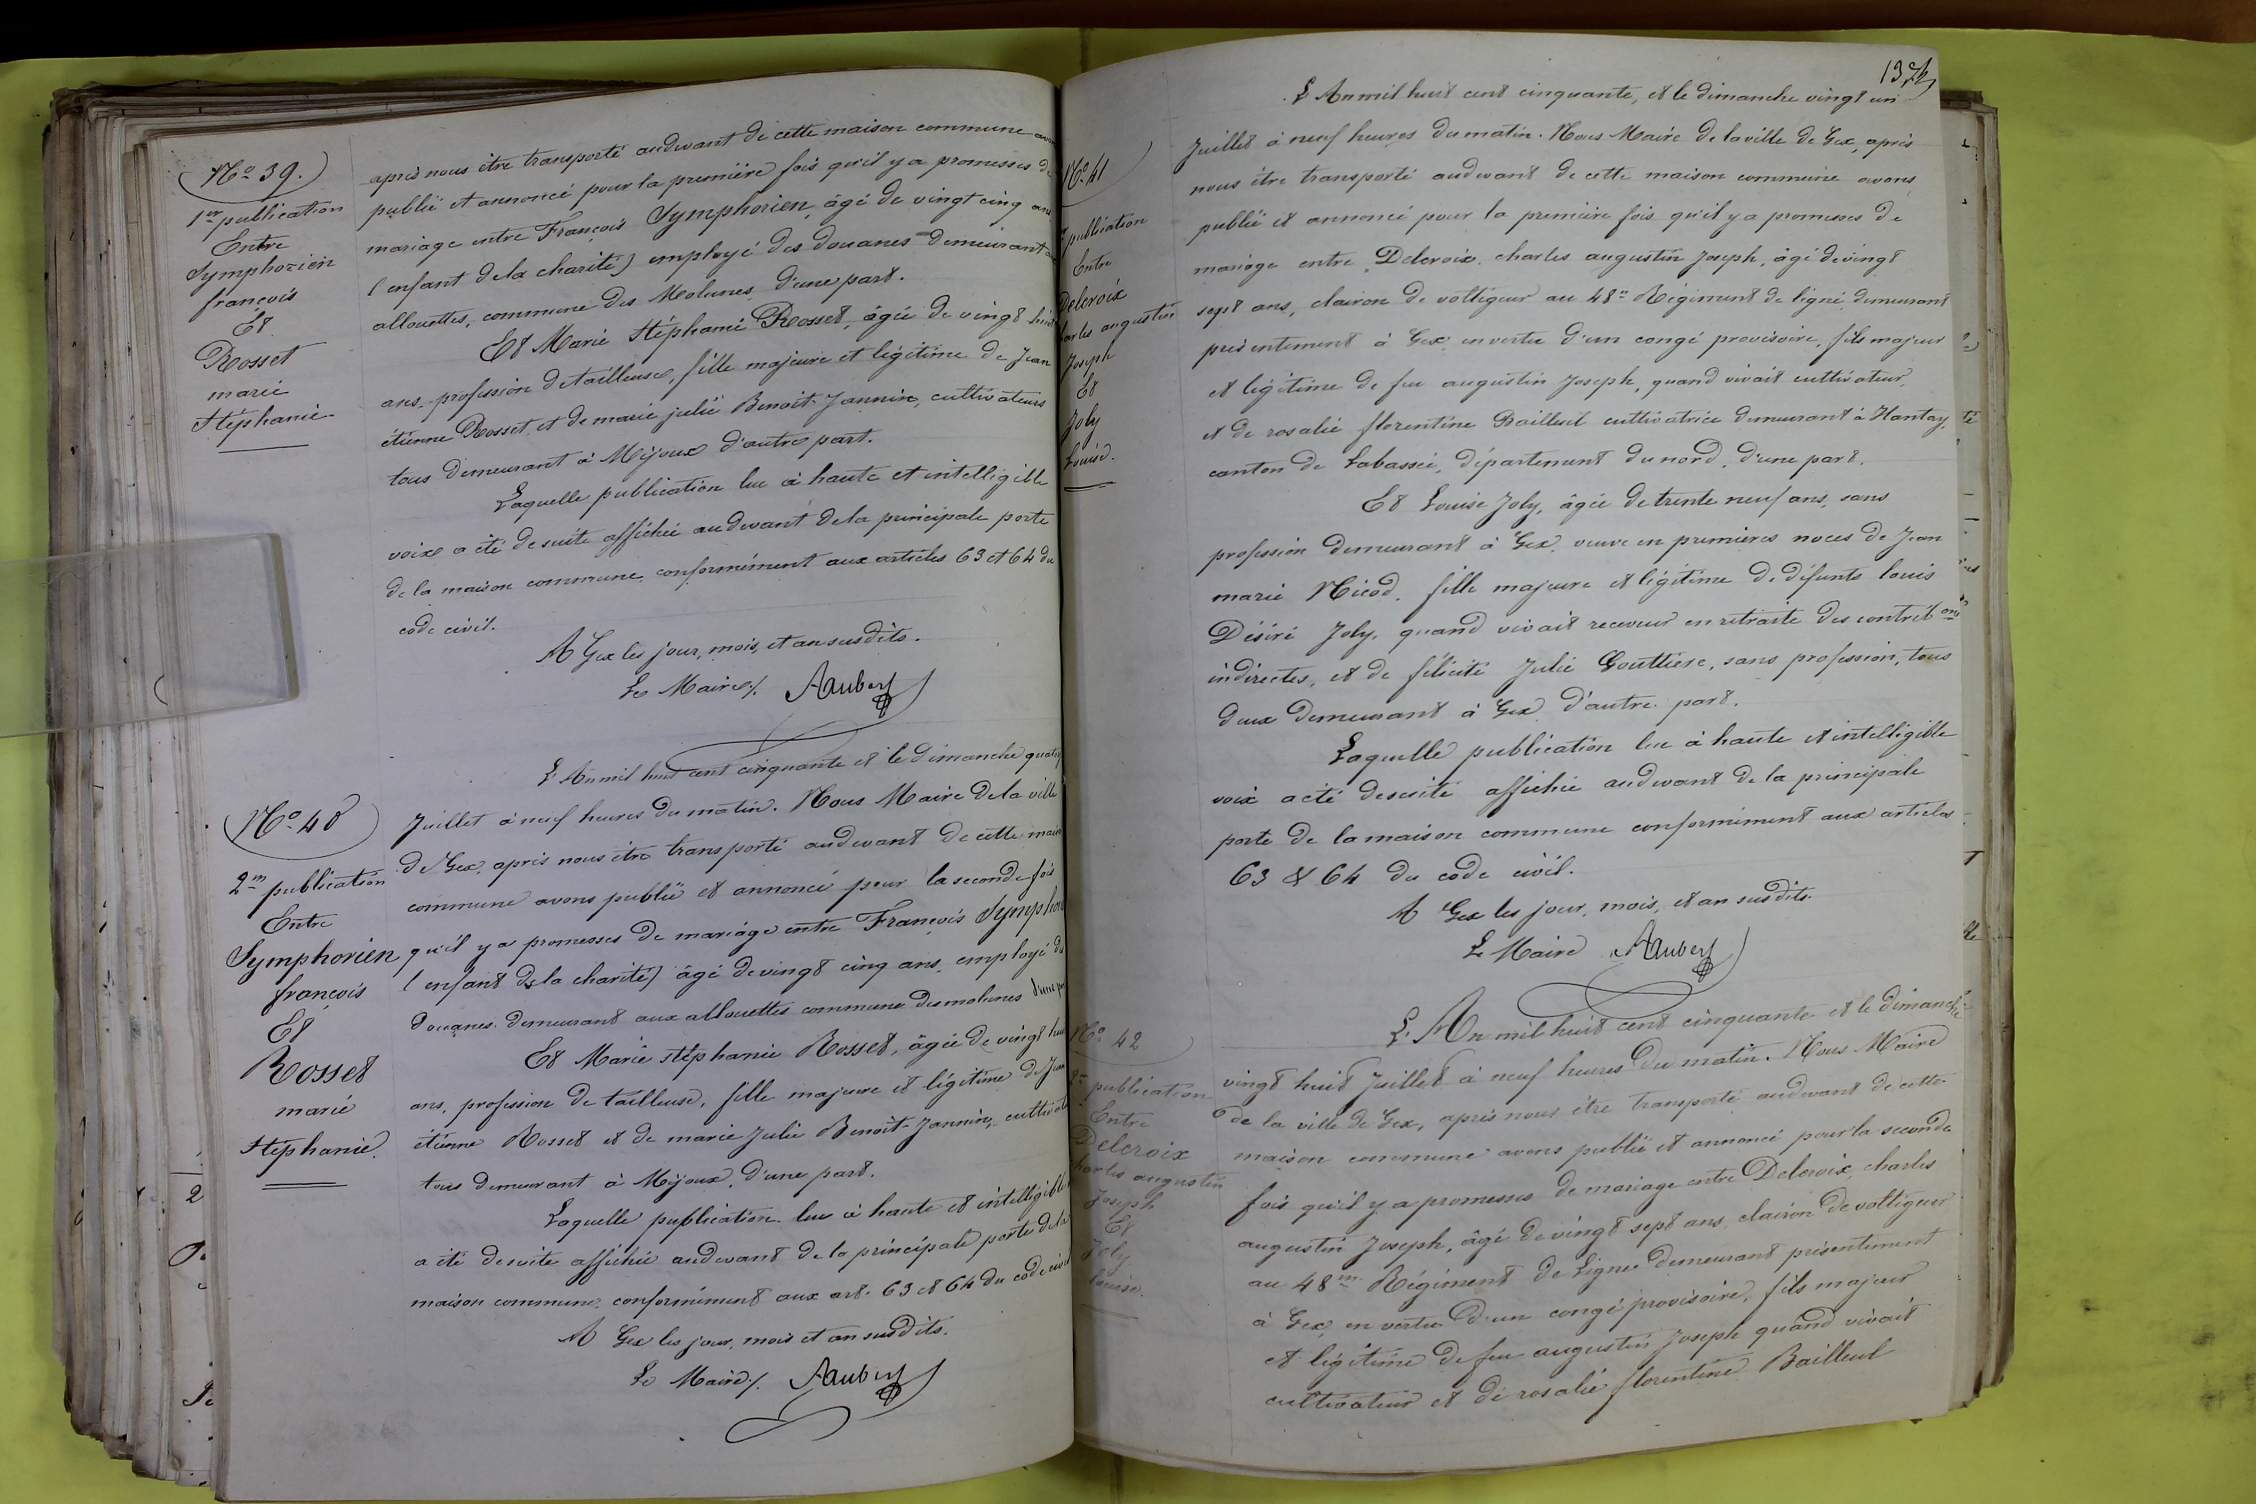 No. 39.
1re publication
Entre
Symphorien
françois
Et
Rosset
marie
Stéphanie
après nous être transporté audevant de cette maison commune avons
publié et annoncé pour la première fois qu'il y a promesses de
mariage entre François Symphorien, âgé de vingt cinq ans
(enfant de la charité) employé des douanes demeurant aux
allouettes, commune des Molunes, d'une part.
Et Marie Stéphanie Rosset, âgée de vingt huit
ans, profession de tailleuse, fille majeure et légitime de Jean
étienne Rosset et de marie julie Benoit-Jannin, cultivateurs
tous demeurant à Mijoux d'autre part.
Laquelle publication lue à haute et intelligible
voix a été desuite affichée audevant de la principale porte
de la maison commune conformément aux articles 63 et 64 du
code civil.
A Gex les jour, mois, et an susdits.
Le Maire /. Aubery
No. 40
2me publication
Entre
Symphorien
françois
Et
Rosset
marie
Stéphanie.
L'An mil huit cent cinquante et le dimanche
Juillet à neuf heures du matin. Nous Maire de la ville
de Gex, après nous être transporté audevant de cette maison
commune avons publié et annoncé pour la seconde fois
qu'il y a promesses de mariage entre François Symphorien
(enfant de la charité) âgé de vingt cinq ans, employé des
douanes demeurant aux allouettes commune des molunes d'une part
Et Marie stéphanie Rosset, âgée de vingt huit
ans, profession de tailleuse, fille majeure et légitime de Jean
étienne Rosset et de marie Julie Benoit-Jannin, cultivateurs
tous demeurant à Mijoux, d'une part.
Laquelle publication lue à haute et intelligible
a été desuite affichée audevant de la principale porte de la
maison commune conformément aux art. 63 et 64 du code civil
A Gex les jour, mois et an susdits.
Le Maire /. Aubery
137
No. 41
publication
Entre
Delcroix
charles augustin
Joseph
Et
Joly
Louise.
L'An mil huit cent cinquante, et le dimanche vingt un
Juillet à neuf heures du matin. Nous Maire de la ville de Gex, après
nous être transporté audevant de cette maison commune avons
publié et annoncé pour la première fois qu'il y a promesses de
mariage entre Delcroix charles augustin Joseph, âgé de vingt
sept ans, clairon de voltigeur au 48me Régiment de ligne demeurant
présentement à Gex envertu d'un congé provisoire, fils majeur
et légitime de feu augustin Joseph, quand vivait cultivateur,
et de rosalie florentine Bailleul cultivatrice demeurant à Hantay,
canton de Labassée, département du nord, d'une part.
Et Louise Joly, âgée de trente neuf ans, sans
profession demeurant à Gex, veuve en premières noces de Jean
marie Nicod, fille majeure et légitime de défunts louis
Désiré Joly, quand vivait receveur en retraite des contribons
indirectes, et de félicité Julie Gouttiere, sans profession, tous
deux demeurant à Gex d'autre part.
Laquelle publication lue à haute et intelligible
voix a été desuite affichée audevant de la principale
porte de la maison commune conformément aux articles
63 & 64 du code civil.
A Gex les jour, mois, et an susdits.
Le Maire Aubery
No. 42
2me publication
Entre
Delcroix
charles augustin
Joseph
Et
Joly
louise.
L'An mil huit cent cinquante et le dimanche
vingt huit Juillet à neuf heures du matin. Nous Maire
de la ville de Gex, après nous être transporté audevant de cette
maison commune avons publié et annoncé pour la seconde
fois qu'il y a promesses de mariage entre Delcroix, charles
augustin Joseph, âgé de vingt sept ans, clairon de voltigeur
au 48me Régiment de Ligne demeurant présentement
à Gex, en vertu d'un congé provisoire, fils majeur
et légitime de feu augustin Joseph quand vivait
cultivateur et de rosalie florentine Bailleul